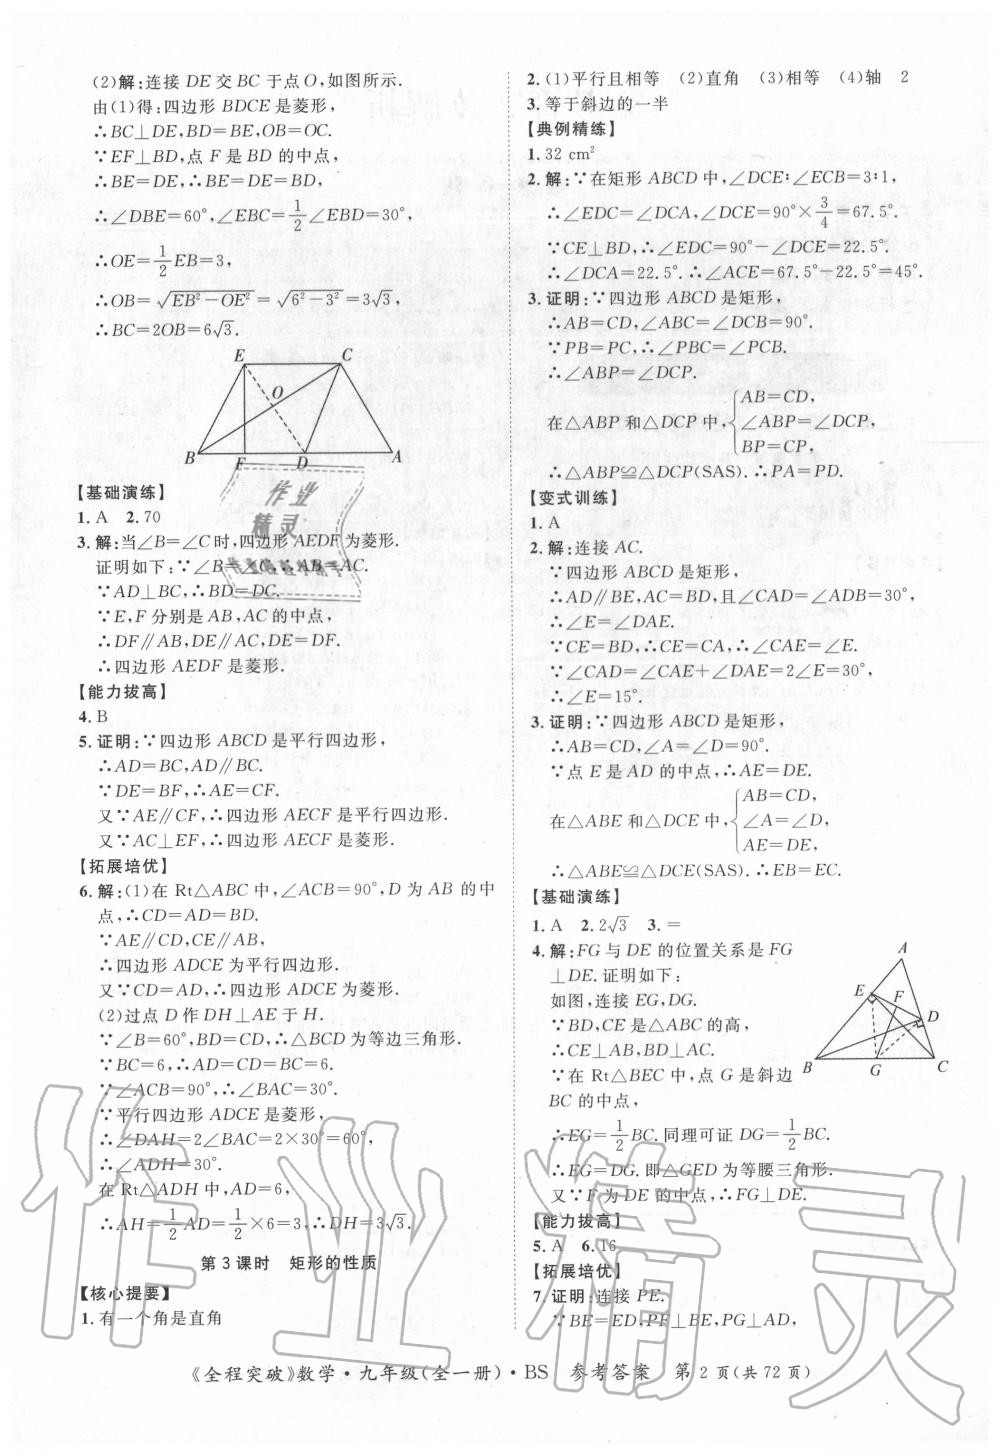 (2)解:连接 DE 交 BC 于点 O,如图所示.
由(1)得:四边形 BDCE 是菱形,
∴BC⊥DE,BD=BE,OB=OC.
∵EF⊥BD,点 F 是 BD 的中点,
∴BE=DE,∴BE=DE=BD,
∴∠DBE=60°,∠EBC=1/2∠EBD=30°,
∴OE=1/2EB=3,
∴OB=√(EB²-OE²)=√(6²-3²)=3√3,
∴BC=2OB=6√3.
E C
O
B F D A
【基础演练】
1. A 2. 70
3. 解:当∠B=∠C时,四边形 AEDF 为菱形.
证明如下:∵∠B=∠C,∴AB=AC.
∵AD⊥BC,∴BD=DC.
∵E,F 分别是 AB,AC 的中点,
∴DF∥AB,DE∥AC,DE=DF.
∴四边形 AEDF 是菱形.
【能力拔高】
4. B
5. 证明:∵四边形 ABCD 是平行四边形,
∴AD=BC,AD∥BC.
∵DE=BF,∴AE=CF.
又∵AE∥CF,∴四边形 AECF 是平行四边形.
又∵AC⊥EF,∴四边形 AECF 是菱形.
【拓展培优】
6. 解:(1)在 Rt△ABC 中,∠ACB=90°,D 为 AB 的中
点,∴CD=AD=BD.
∵AE∥CD,CE∥AB,
∴四边形 ADCE 为平行四边形.
又∵CD=AD,∴四边形 ADCE 是菱形.
(2)过点 D 作 DH⊥AE 于 H.
∵∠B=60°,BD=CD,∴△BCD 为等边三角形.
∵BC=6,∴AD=CD=BC=6.
∵∠ACB=90°,∴∠BAC=30°.
∵平行四边形 ADCE 是菱形,
∴∠DAH=2∠BAC=2×30°=60°,
∴∠ADH=30°.
在 Rt△ADH 中,AD=6,
∴AH=1/2AD=1/2×6=3,∴DH=3√3.
第 3 课时 矩形的性质
【核心提要】
1. 有一个角是直角
2. (1)平行且相等 (2)直角 (3)相等 (4)轴 2
3. 等于斜边的一半
【典例精练】
1. 32 cm²
2. 解:∵在矩形 ABCD 中,∠DCE∶∠ECB=3∶1,
∴∠EDC=∠DCA,∠DCE=90°×3/4=67.5°.
∵CE⊥BD,∴∠EDC=90°-∠DCE=22.5°.
∴∠DCA=22.5°.∴∠ACE=67.5°-22.5°=45°.
3. 证明:∵四边形 ABCD 是矩形,
∴AB=CD,∠ABC=∠DCB=90°.
∵PB=PC,∴∠PBC=∠PCB.
∴∠ABP=∠DCP.
在△ABP 和△DCP 中,{AB=CD,
∠ABP=∠DCP,
BP=CP,
∴△ABP≌△DCP(SAS).∴PA=PD.
【变式训练】
1. A
2. 解:连接 AC.
∵四边形 ABCD 是矩形,
∴AD∥BE,AC=BD,且∠CAD=∠ADB=30°.
∴∠E=∠DAE.
∵CE=BD,∴CE=CA,∴∠CAE=∠E.
∵∠CAD=∠CAE+∠DAE=2∠E=30°,
∴∠E=15°.
3. 证明:∵四边形 ABCD 是矩形,
∴AB=CD,∠A=∠D=90°.
∵点 E 是 AD 的中点,∴AE=DE.
在△ABE 和△DCE 中,{AB=CD,
∠A=∠D,
AE=DE,
∴△ABE≌△DCE(SAS).∴EB=EC.
【基础演练】
1. A 2. 2√3 3. =
4. 解:FG 与 DE 的位置关系是 FG
⊥DE.证明如下:
如图,连接 EG,DG.
∵BD,CE 是△ABC 的高,
∴CE⊥AB,BD⊥AC.
∵在 Rt△BEC 中,点 G 是斜边
BC 的中点,
A
E F
D
B G C
∴EG=1/2BC.同理可证 DG=1/2BC.
∴EG=DG.即△GED 为等腰三角形.
又∵F 为 DE 的中点,∴FG⊥DE.
【能力拔高】
5. A 6. 16
【拓展培优】
7. 证明:连接 PE.
∵BE=ED,PF⊥BE,PG⊥AD,
《全程突破》数学·九年级(全一册)·BS 参考答案 第 2 页(共 72 页)
作业
精灵
作业精灵